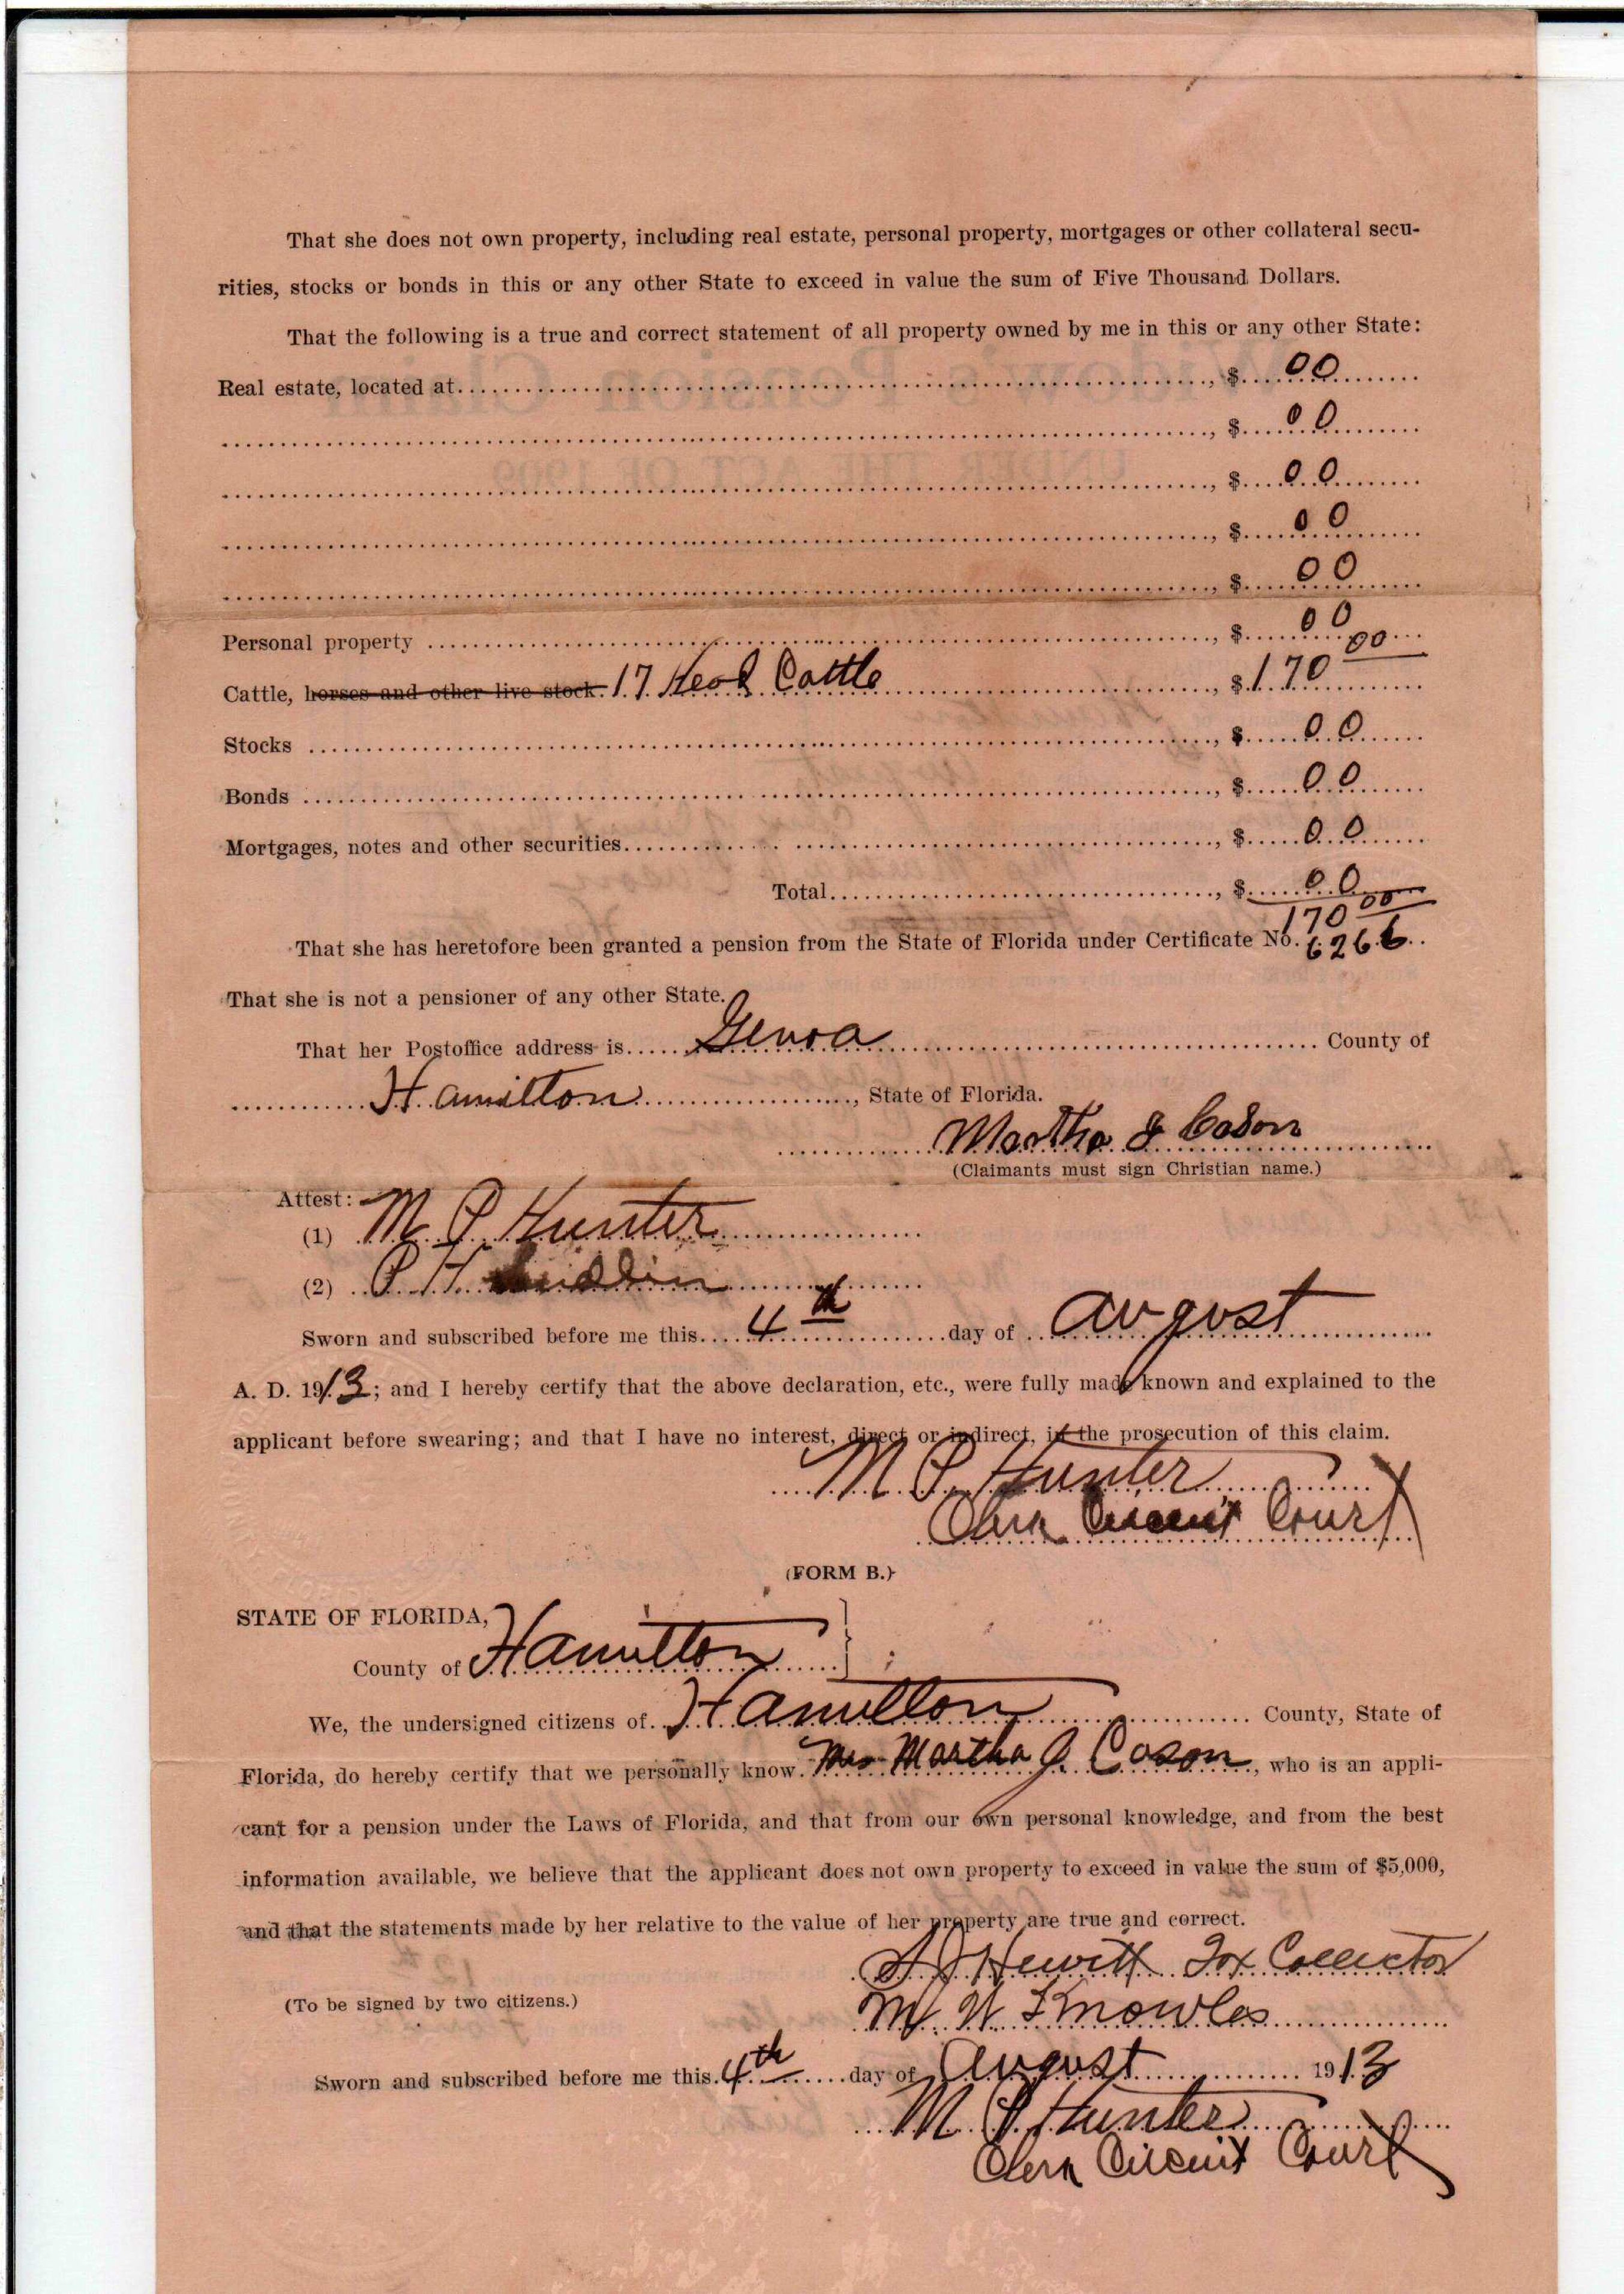 That she does not own property, including real estate, personal property, mortgages or other collateral secu-
rities, stocks or bonds in this or any other State to exceed in value the sum of Five Thousand Dollars.
That the following is a true and correct statement of all property owned by me in this or any other State:
Real estate, located at, $ 00
, $ 00
, $ 00
, $ 00
, $ 00
Personal property, $ 00
Cattle, horses and other live stock. 17 Head Cattle, $ 170 00
Stocks, $ 00
Bonds, $ 00
Mortgages, notes and other securities, $ 00
Total, $ 00
170 00
That she has heretofore been granted a pension from the State of Florida under Certificate No. 6266
That she is not a pensioner of any other State.
That her Postoffice address is Genoa County of
Hamilton, State of Florida.
Martha J Cason
(Claimants must sign Christian name.)
Attest:
(1) M P Hunter
(2) P H
Sworn and subscribed before me this 4th day of august
A. D. 1913; and I hereby certify that the above declaration, etc., were fully made known and explained to the
applicant before swearing; and that I have no interest, direct or indirect, in the prosecution of this claim.
M P Hunter
Clerk Circuit Court
(FORM B.)
STATE OF FLORIDA,
County of Hamilton
We, the undersigned citizens of Hamilton County, State of
Florida, do hereby certify that we personally know Mrs Martha J. Cason, who is an appli-
cant for a pension under the Laws of Florida, and that from our own personal knowledge, and from the best
information available, we believe that the applicant does not own property to exceed in value the sum of $5,000,
and that the statements made by her relative to the value of her property are true and correct.
Hewitt Tax Collector
(To be signed by two citizens.)
M. W. Knowles
Sworn and subscribed before me this 4th day of August 1913
M P Hunter
Clerk Circuit Court